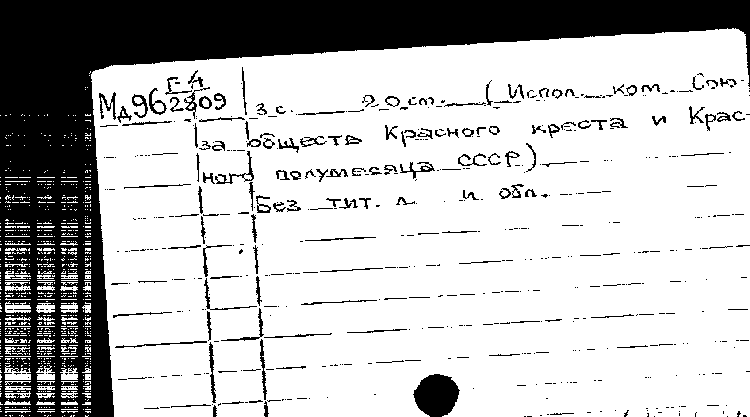 Г-4
Мд96 2809 3 с. 20 см. (Испол. ком. Сою-
за обществ Красного креста и Крас-
ного полумесяца СССР).
Без тит. л. и обл.